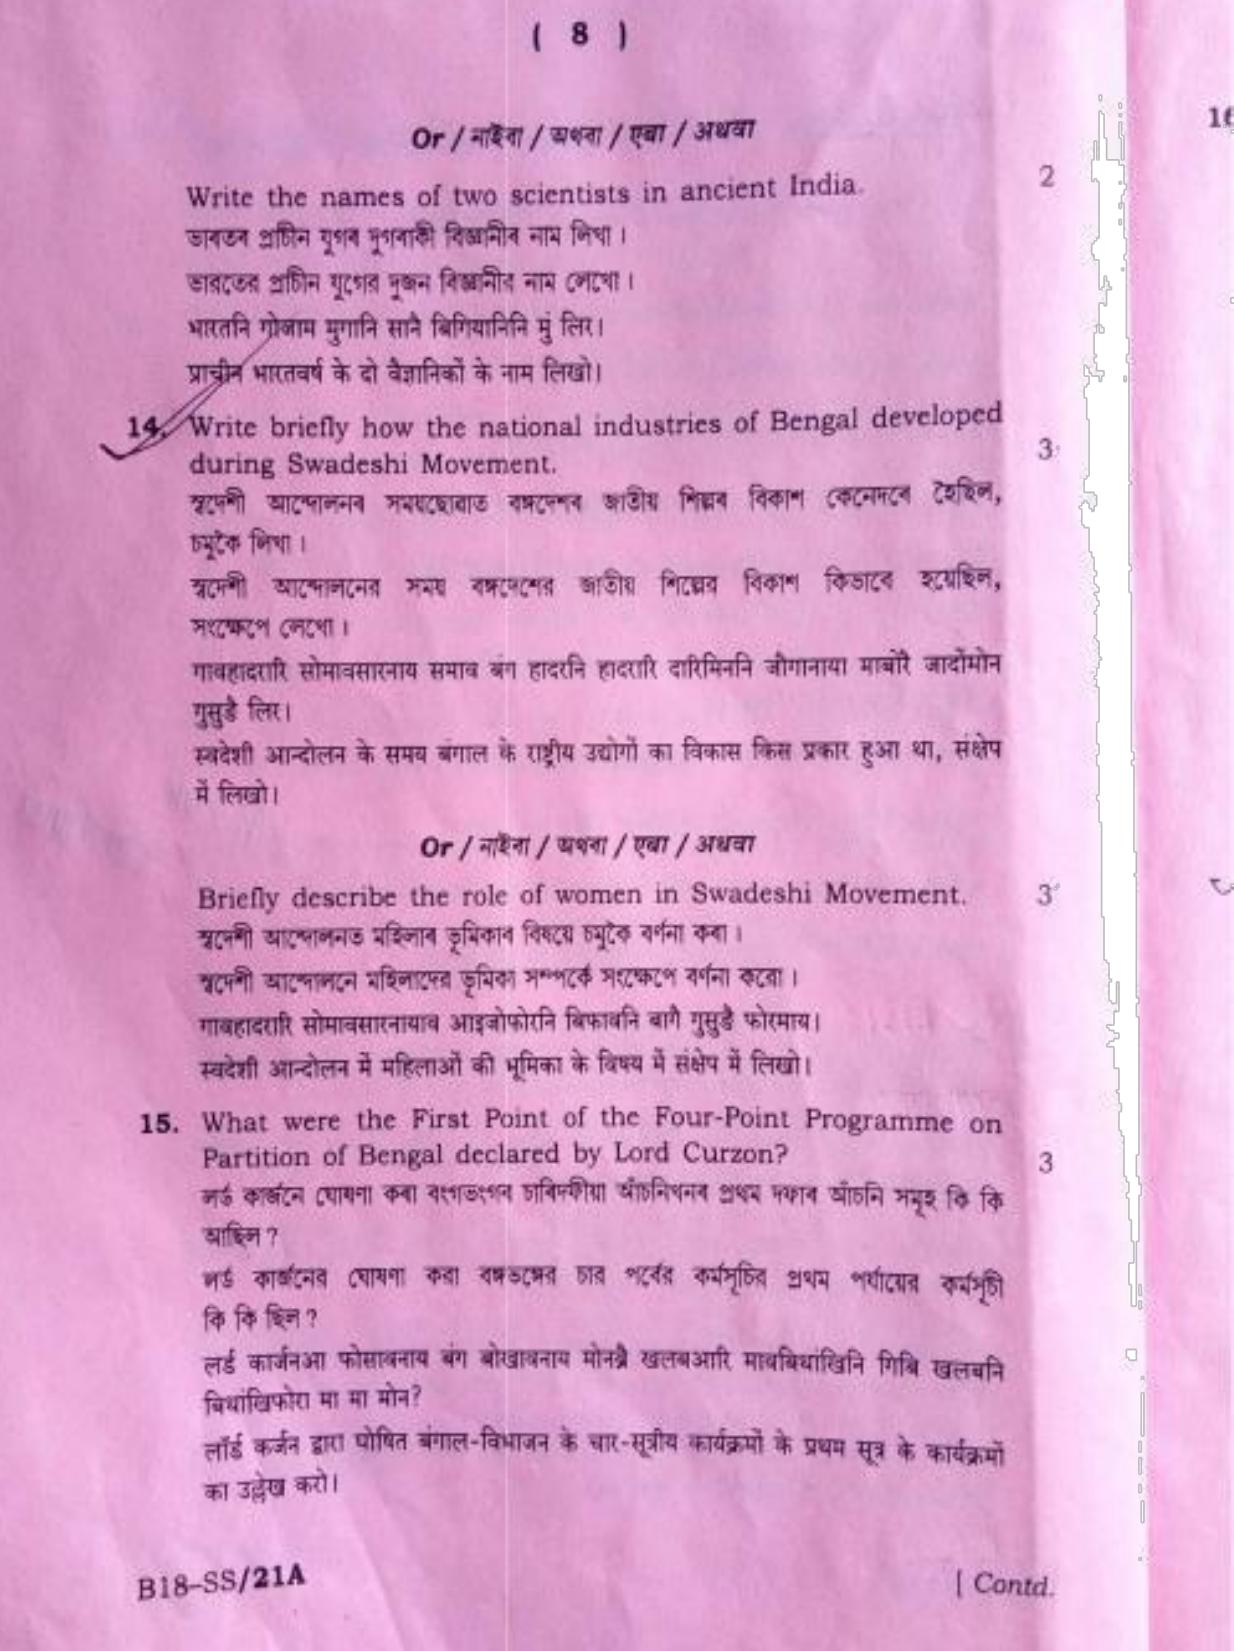 ( 8 )
Or / নাইবা / অথবা / एबा / अथवा
Write the names of two scientists in ancient India. 2
ভাৰতৰ প্ৰাচীন যুগৰ দুগৰাকী বিজ্ঞানীৰ নাম লিখা ।
ভারতের প্রাচীন যুগের দুজন বিজ্ঞানীর নাম লেখো ।
भारतनि गोजाम मुगानि सानै बिगियानिनि मुं लिर।
प्राचीन भारतवर्ष के दो वैज्ञानिकों के नाम लिखो।
14. Write briefly how the national industries of Bengal developed
during Swadeshi Movement. 3
স্বদেশী আন্দোলনৰ সময়ছোৱাত বঙ্গদেশৰ জাতীয় শিল্পৰ বিকাশ কেনেদৰে হৈছিল,
চমুকৈ লিখা ।
স্বদেশী আন্দোলনের সময় বঙ্গদেশের জাতীয় শিল্পের বিকাশ কিভাবে হয়েছিল,
সংক্ষেপে লেখো ।
गावहादरारि सोमावसारनाय समाव बंग हादरनि हादरारि दारिमिननि जौगानाया माबोरै जादोंमोन
गुसुङै लिर।
स्वदेशी आन्दोलन के समय बंगाल के राष्ट्रीय उद्योगों का विकास किस प्रकार हुआ था, संक्षेप
में लिखो।
Or / নাইবা / অথবা / एबा / अथवा
Briefly describe the role of women in Swadeshi Movement. 3
স্বদেশী আন্দোলনত মহিলাৰ ভূমিকাৰ বিষয়ে চমুকৈ বৰ্ণনা কৰা ।
স্বদেশী আন্দোলনে মহিলাদের ভূমিকা সম্পর্কে সংক্ষেপে বর্ণনা করো ।
गावहादरारि सोमावसारनायाव आइजोफोरनि बिफावनि बागै गुसुङै फोरमाय।
स्वदेशी आन्दोलन में महिलाओं की भूमिका के विषय में संक्षेप में लिखो।
15. What were the First Point of the Four-Point Programme on
Partition of Bengal declared by Lord Curzon? 3
লৰ্ড কাৰ্জনে ঘোষণা কৰা বংগভংগৰ চাৰিদফীয়া আঁচনিখনৰ প্ৰথম দফাৰ আঁচনি সমূহ কি কি
আছিল ?
লর্ড কার্জনের ঘোষণা করা বঙ্গভঙ্গের চার পর্বের কর্মসূচির প্রথম পর্যায়ের কর্মসূচী
কি কি ছিল ?
लर्ड कार्जनआ फोसावनाय बंग बोखावनाय मोनब्रै खलबआरि मावबिथांखिनि गिबि खलबनि
बिथांखिफोरा मा मा मोन?
लॉर्ड कर्जन द्वारा घोषित बंगाल-विभाजन के चार-सूत्रीय कार्यक्रमों के प्रथम सूत्र के कार्यक्रमों
का उल्लेख करो।
B18-SS/21A [ Contd.